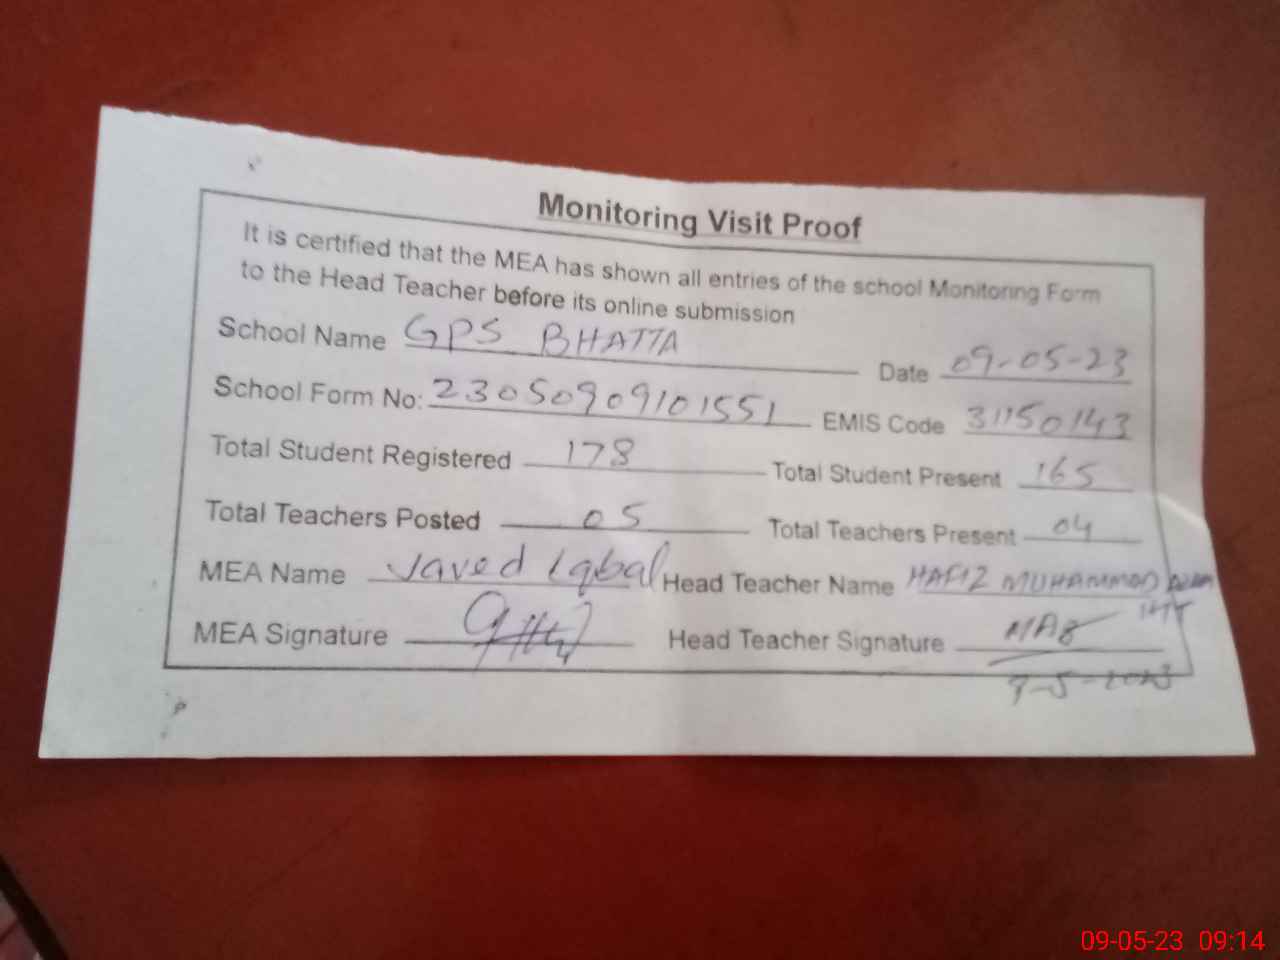 Monitoring Visit Proof
It is certified that the MEA has shown all entries of the school Monitoring Form
to the Head Teacher before its online submission
School Name GPS BHATTA Date 09-05-23
School Form No: 23050909101551 EMIS Code 31150143
Total Student Registered 178 Total Student Present 165
Total Teachers Posted 05 Total Teachers Present 04
MEA Name Javed Iqbal Head Teacher Name HAFIZ MUHAMMAD
MEA Signature Head Teacher Signature
9-5-2023
09-05-23 09:14